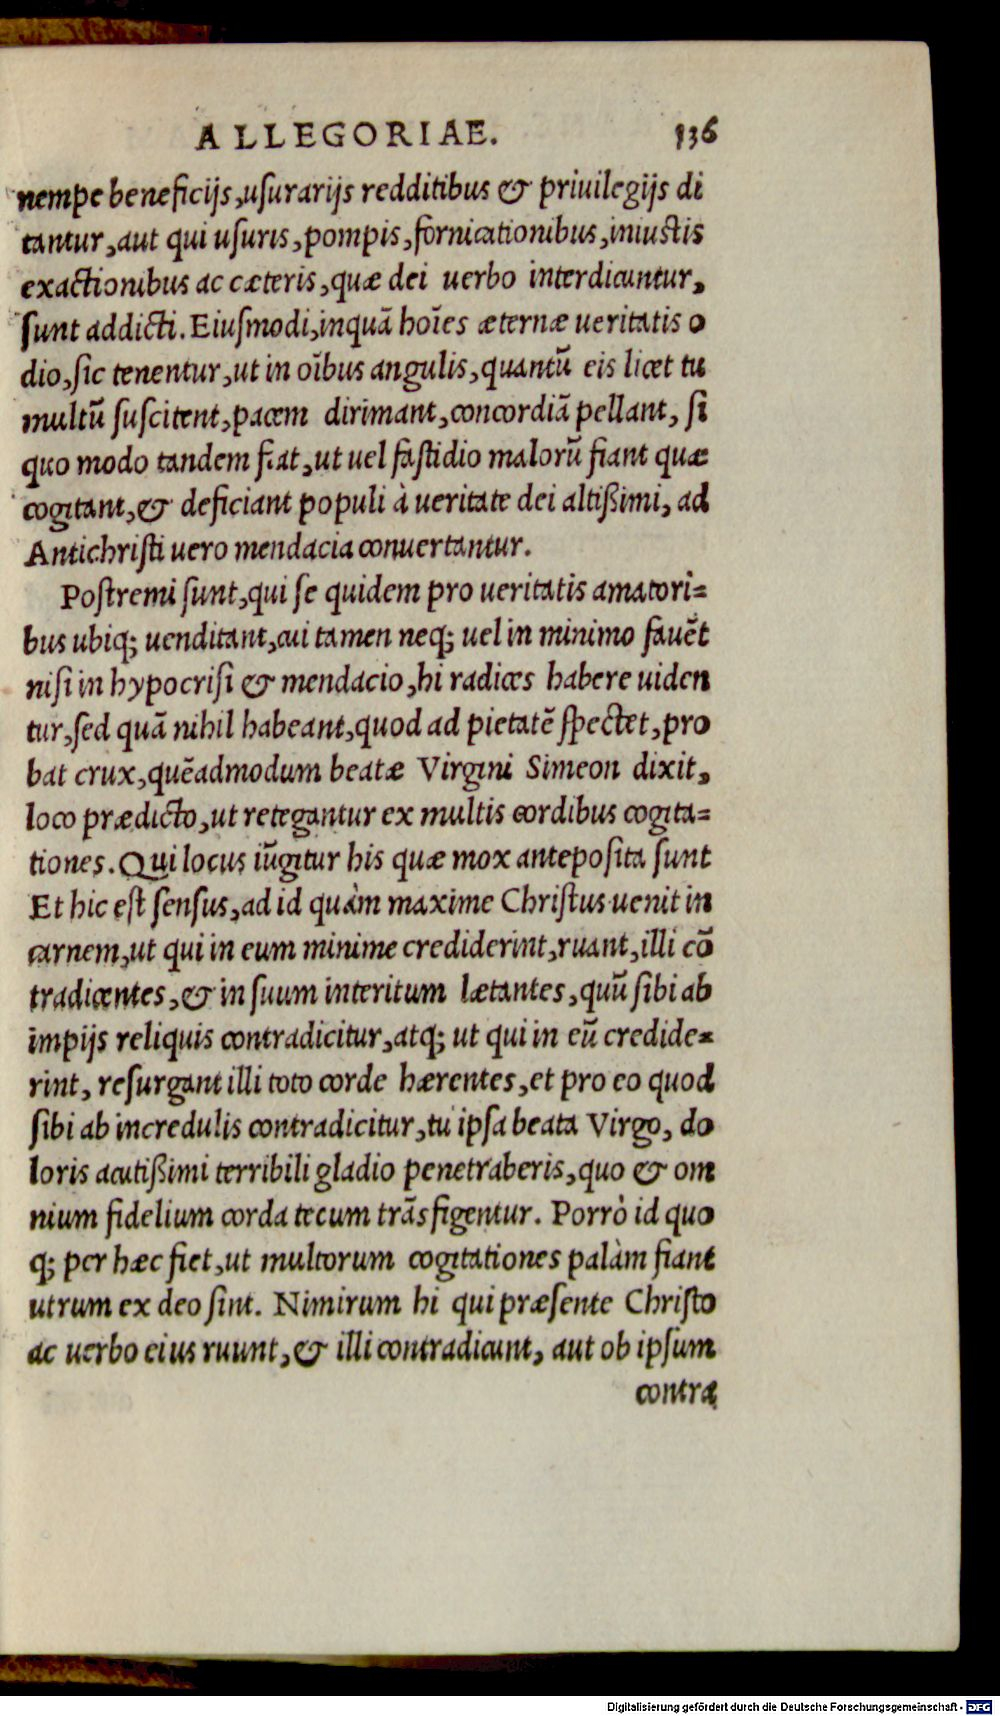 ALLEGORIAE. 136
nempe beneficijs, usurarijs redditibus & priuilegijs di
tantur, aut qui usuris, pompis, fornicationibus, iniustis
exactionibus ac cæteris, quæ dei uerbo interdicuntur,
sunt addicti. Eiusmodi, inquã hoīes æternæ ueritatis o
dio, sic tenentur, ut in oībus angulis, quantũ eis licet tu
multũ suscitent, pacem dirimant, concordiã pellant, si
quo modo tandem fiat, ut uel fastidio malorũ fiant quæ
cogitant, & deficiant populi à ueritate dei altißimi, ad
Antichristi uero mendacia conuertantur.
Postremi sunt, qui se quidem pro ueritatis amatori=
bus ubiq; uenditant, cui tamen neq; uel in minimo fauẽt
nisi in hypocrisi & mendacio, hi radices habere uiden
tur, sed quã nihil habeant, quod ad pietatẽ spectet, pro
bat crux, quẽadmodum beatæ Virgini Simeon dixit,
loco prædicto, ut retegantur ex multis cordibus cogita=
tiones. Qui locus iũgitur his quæ mox anteposita sunt
Et hic est sensus, ad id quàm maxime Christus uenit in
carnem, ut qui in eum minime crediderint, ruant, illi cõ
tradicentes, & in suum interitum lætantes, quũ sibi ab
impijs reliquis contradicitur, atq; ut qui in eũ credide=
rint, resurgant illi toto corde hærentes, et pro eo quod
sibi ab incredulis contradicitur, tu ipsa beata Virgo, do
loris acutißimi terribili gladio penetraberis, quo & om
nium fidelium corda tecum trãsfigentur. Porrò id quo
q; per hæc fiet, ut multorum cogitationes palàm fiant
utrum ex deo sint. Nimirum hi qui præsente Christo
ac uerbo eius ruunt, & illi contradicunt, aut ob ipsum
contra
Digitalisierung gefördert durch die Deutsche Forschungsgemeinschaft - DFG